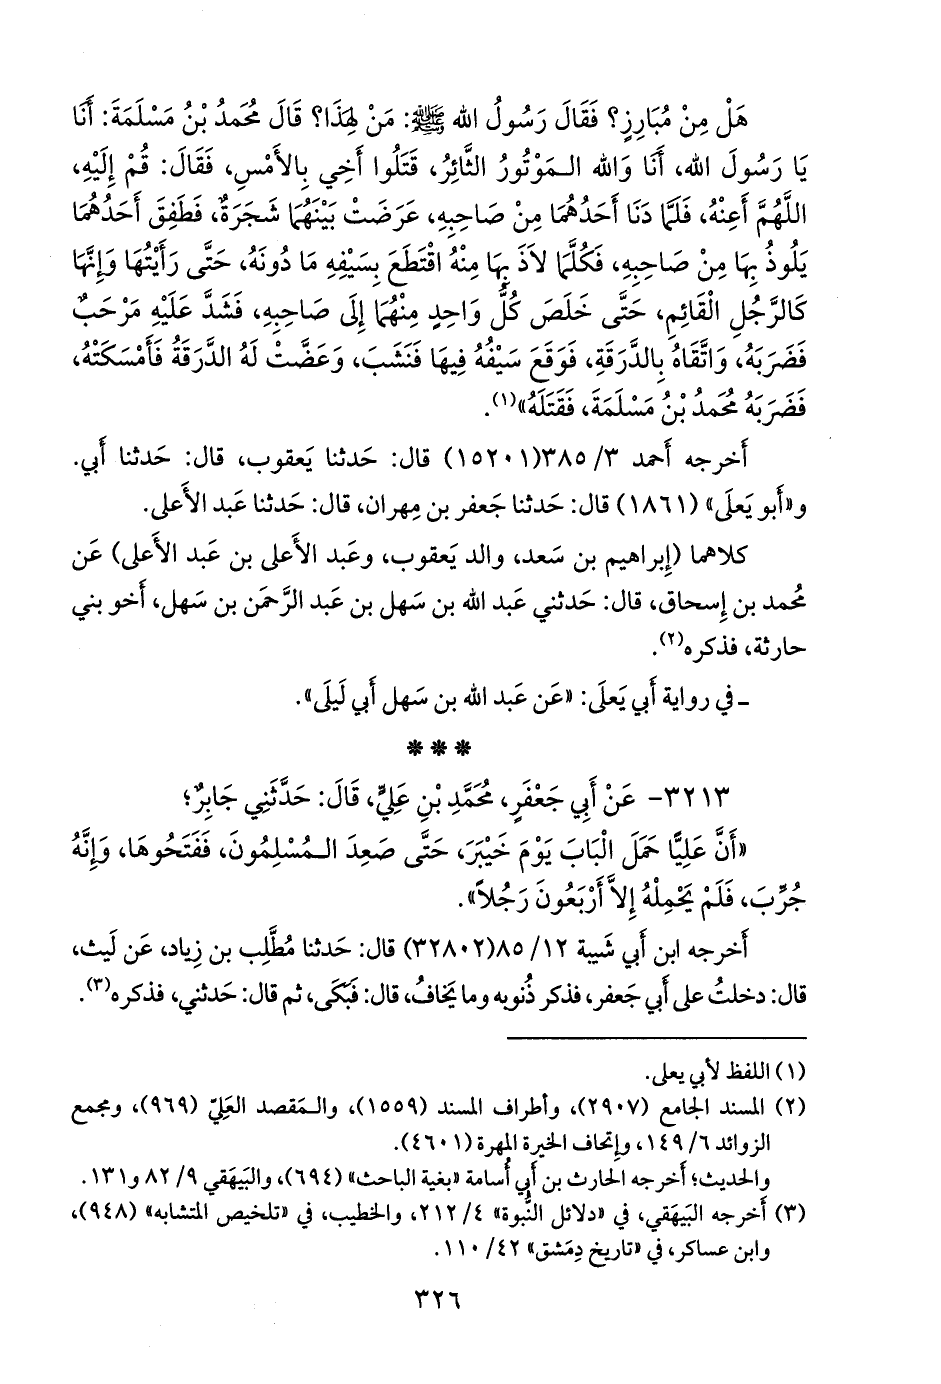 هَلْ مِنْ مُبَارِزٍ؟ فَقَالَ رَسُولُ الله ﷺ: مَنْ لِهَذَا؟ قَالَ مُحَمدُ بْنُ مَسْلَمَةَ: أَنَا
يَا رَسُولَ الله، أَنَا وَالله الـمَوْتُورُ الثَّائِرُ، قَتَلُوا أَخِي بِالأَمْسِ، فَقَالَ: قُمْ إِلَيْهِ،
اللَّهُمَّ أَعِنْهُ، فَلَمَّا دَنَا أَحَدُهُمَا مِنْ صَاحِبِهِ، عَرَضَتْ بَيْنَهُمَا شَجَرَةٌ، فَطَفِقَ أَحَدُهُمَا
يَلُوذُ بِهَا مِنْ صَاحِبِهِ، فَكُلَّمَا لاَذَ بِهَا مِنْهُ اقْتَطَعَ بِسَيْفِهِ مَا دُونَهُ، حَتَّى رَأَيْتُهَا وَإِنَّهَا
كَالرَّجُلِ الْقَائِمِ، حَتَّى خَلَصَ كُلُّ وَاحِدٍ مِنْهُمَا إِلَى صَاحِبِهِ، فَشَدَّ عَلَيْهِ مَرْحَبٌ
فَضَرَبَهُ، وَاتَّقَاهُ بِالدَّرَقَةِ، فَوَقَعَ سَيْفُهُ فِيهَا فَنَشَبَ، وَعَضَّتْ لَهُ الدَّرَقَةُ فَأَمْسَكَتْهُ،
فَضَرَبَهُ مُحَمدُ بْنُ مَسْلَمَةَ، فَقَتَلَهُ»(١).
أَخرجه أَحمد ٣/ ٣٨٥(١٥٢٠١) قال: حَدثنا يَعقوب، قال: حَدثنا أَبي.
و«أَبو يَعلَى» (١٨٦١) قال: حَدثنا جَعفر بن مِهران، قال: حَدثنا عَبد الأَعلى.
كلاهما (إِبراهيم بن سَعد، والد يَعقوب، وعَبد الأَعلى بن عَبد الأَعلى) عَن
مُحمد بن إِسحاق، قال: حَدثني عَبد الله بن سَهل بن عَبد الرَّحمَن بن سَهل، أَخو بني
حارثة، فذكره(٢).
ـ في رواية أَبي يَعلَى: «عَن عَبد الله بن سَهل أَبي لَيلَى».
***
٣٢١٣- عَنْ أَبِي جَعْفَرٍ، مُحَمَّدِ بْنِ عَلِيٍّ، قَالَ: حَدَّثَنِي جَابِرٌ؛
«أَنَّ عَلِيًّا حَمَلَ الْبَابَ يَوْمَ خَيْبَرَ، حَتَّى صَعِدَ الـمُسْلِمُونَ، فَفَتَحُوهَا، وَإِنَّهُ
جُرِّبَ، فَلَمْ يَحْمِلْهُ إِلاَّ أَرْبَعُونَ رَجُلاً».
أَخرجه ابن أَبي شَيبة ١٢/ ٨٥(٣٢٨٠٢) قال: حَدثنا مُطَّلِب بن زِياد، عَن لَيث،
قال: دخلتُ على أَبي جَعفر، فذكر ذُنوبه وما يَخافُ، قال: فَبَكَى، ثم قال: حَدثني، فذكره(٣).
(١) اللفظ لأبي يعلى.
(٢) المسند الجامع (٢٩٠٧)، وأطراف المسند (١٥٥٩)، والـمَقصد العَلِيّ (٩٦٩)، ومجمع
الزوائد ٦/ ١٤٩، وإتحاف الخيرة المهرة (٤٦٠١).
والحديث؛ أخرجه الحارث بن أبي أُسامة «بغية الباحث» (٦٩٤)، والبَيهَقي ٩/ ٨٢ و١٣١.
(٣) أخرجه البَيهَقي، في «دلائل النُّبوة» ٤/ ٢١٢، والخطيب، في «تلخيص المتشابه» (٩٤٨)،
وابن عساكر، في «تاريخ دِمَشق» ٤٢/ ١١٠.
٣٢٦